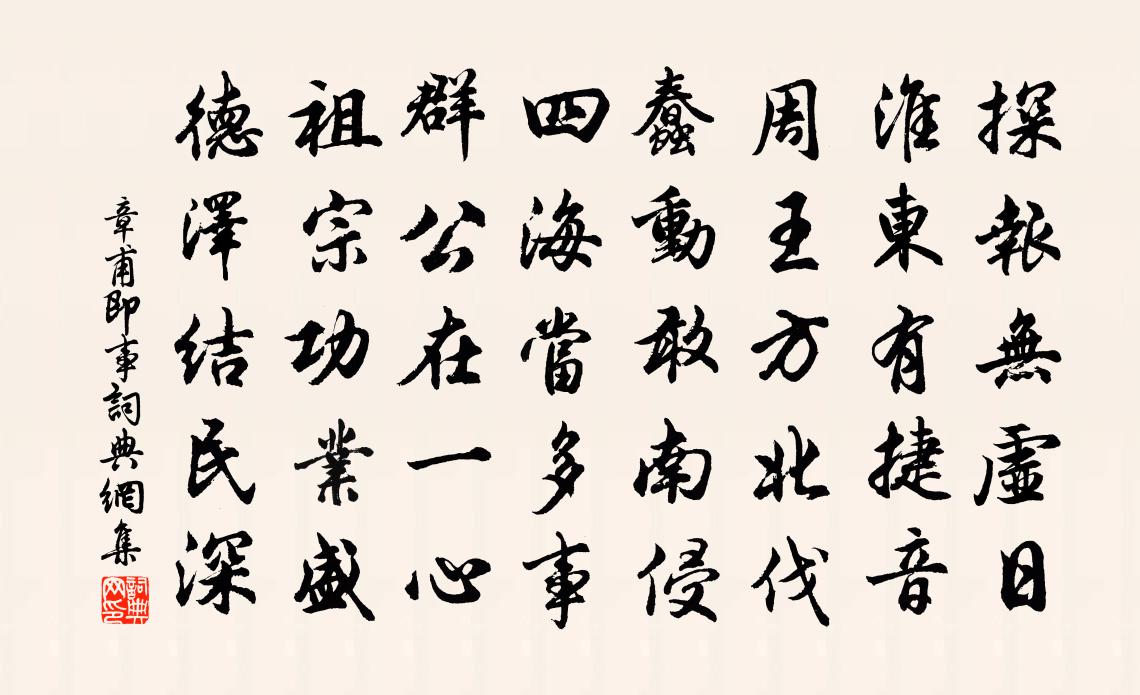 探報無虛日
淮東有捷音
周王方北伐
蠢動敢南侵
四海當多事
群公在一心
祖宗功業盛
德澤结民深
章甫即事詞典網集
詞典网印